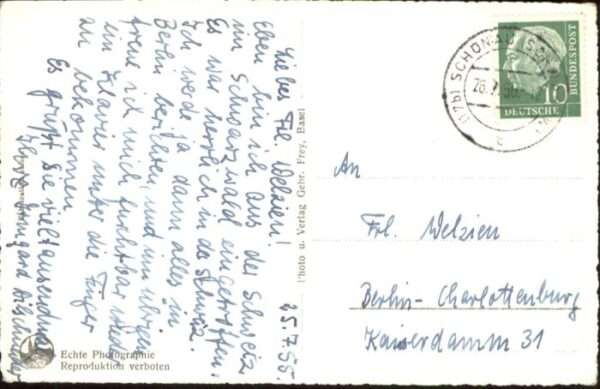 25.7.55.
Liebes Frl. Welzien!
Eben bin ich aus der Schweiz
im Schwarzwald eingetroffen.
Es war herrlich in der Schweiz.
Ich werde ja dann alles in
Berlin berichten, und im übrigen
freue ich mich furchtbar wieder
ein Klavier unter die Finger
zu bekommen.
Es grüßt Sie vieltausendmal
Ihre Irmgard
Echte Photographie
Reproduktion verboten
Photo u. Verlag Gebr. Frey, Basel
(17b) SCHÖNAU (SCHW
DEUTSCHE
BUNDESPOST
10
An
Frl. Welzien
Berlin-Charlottenburg
Kaiserdamm 31